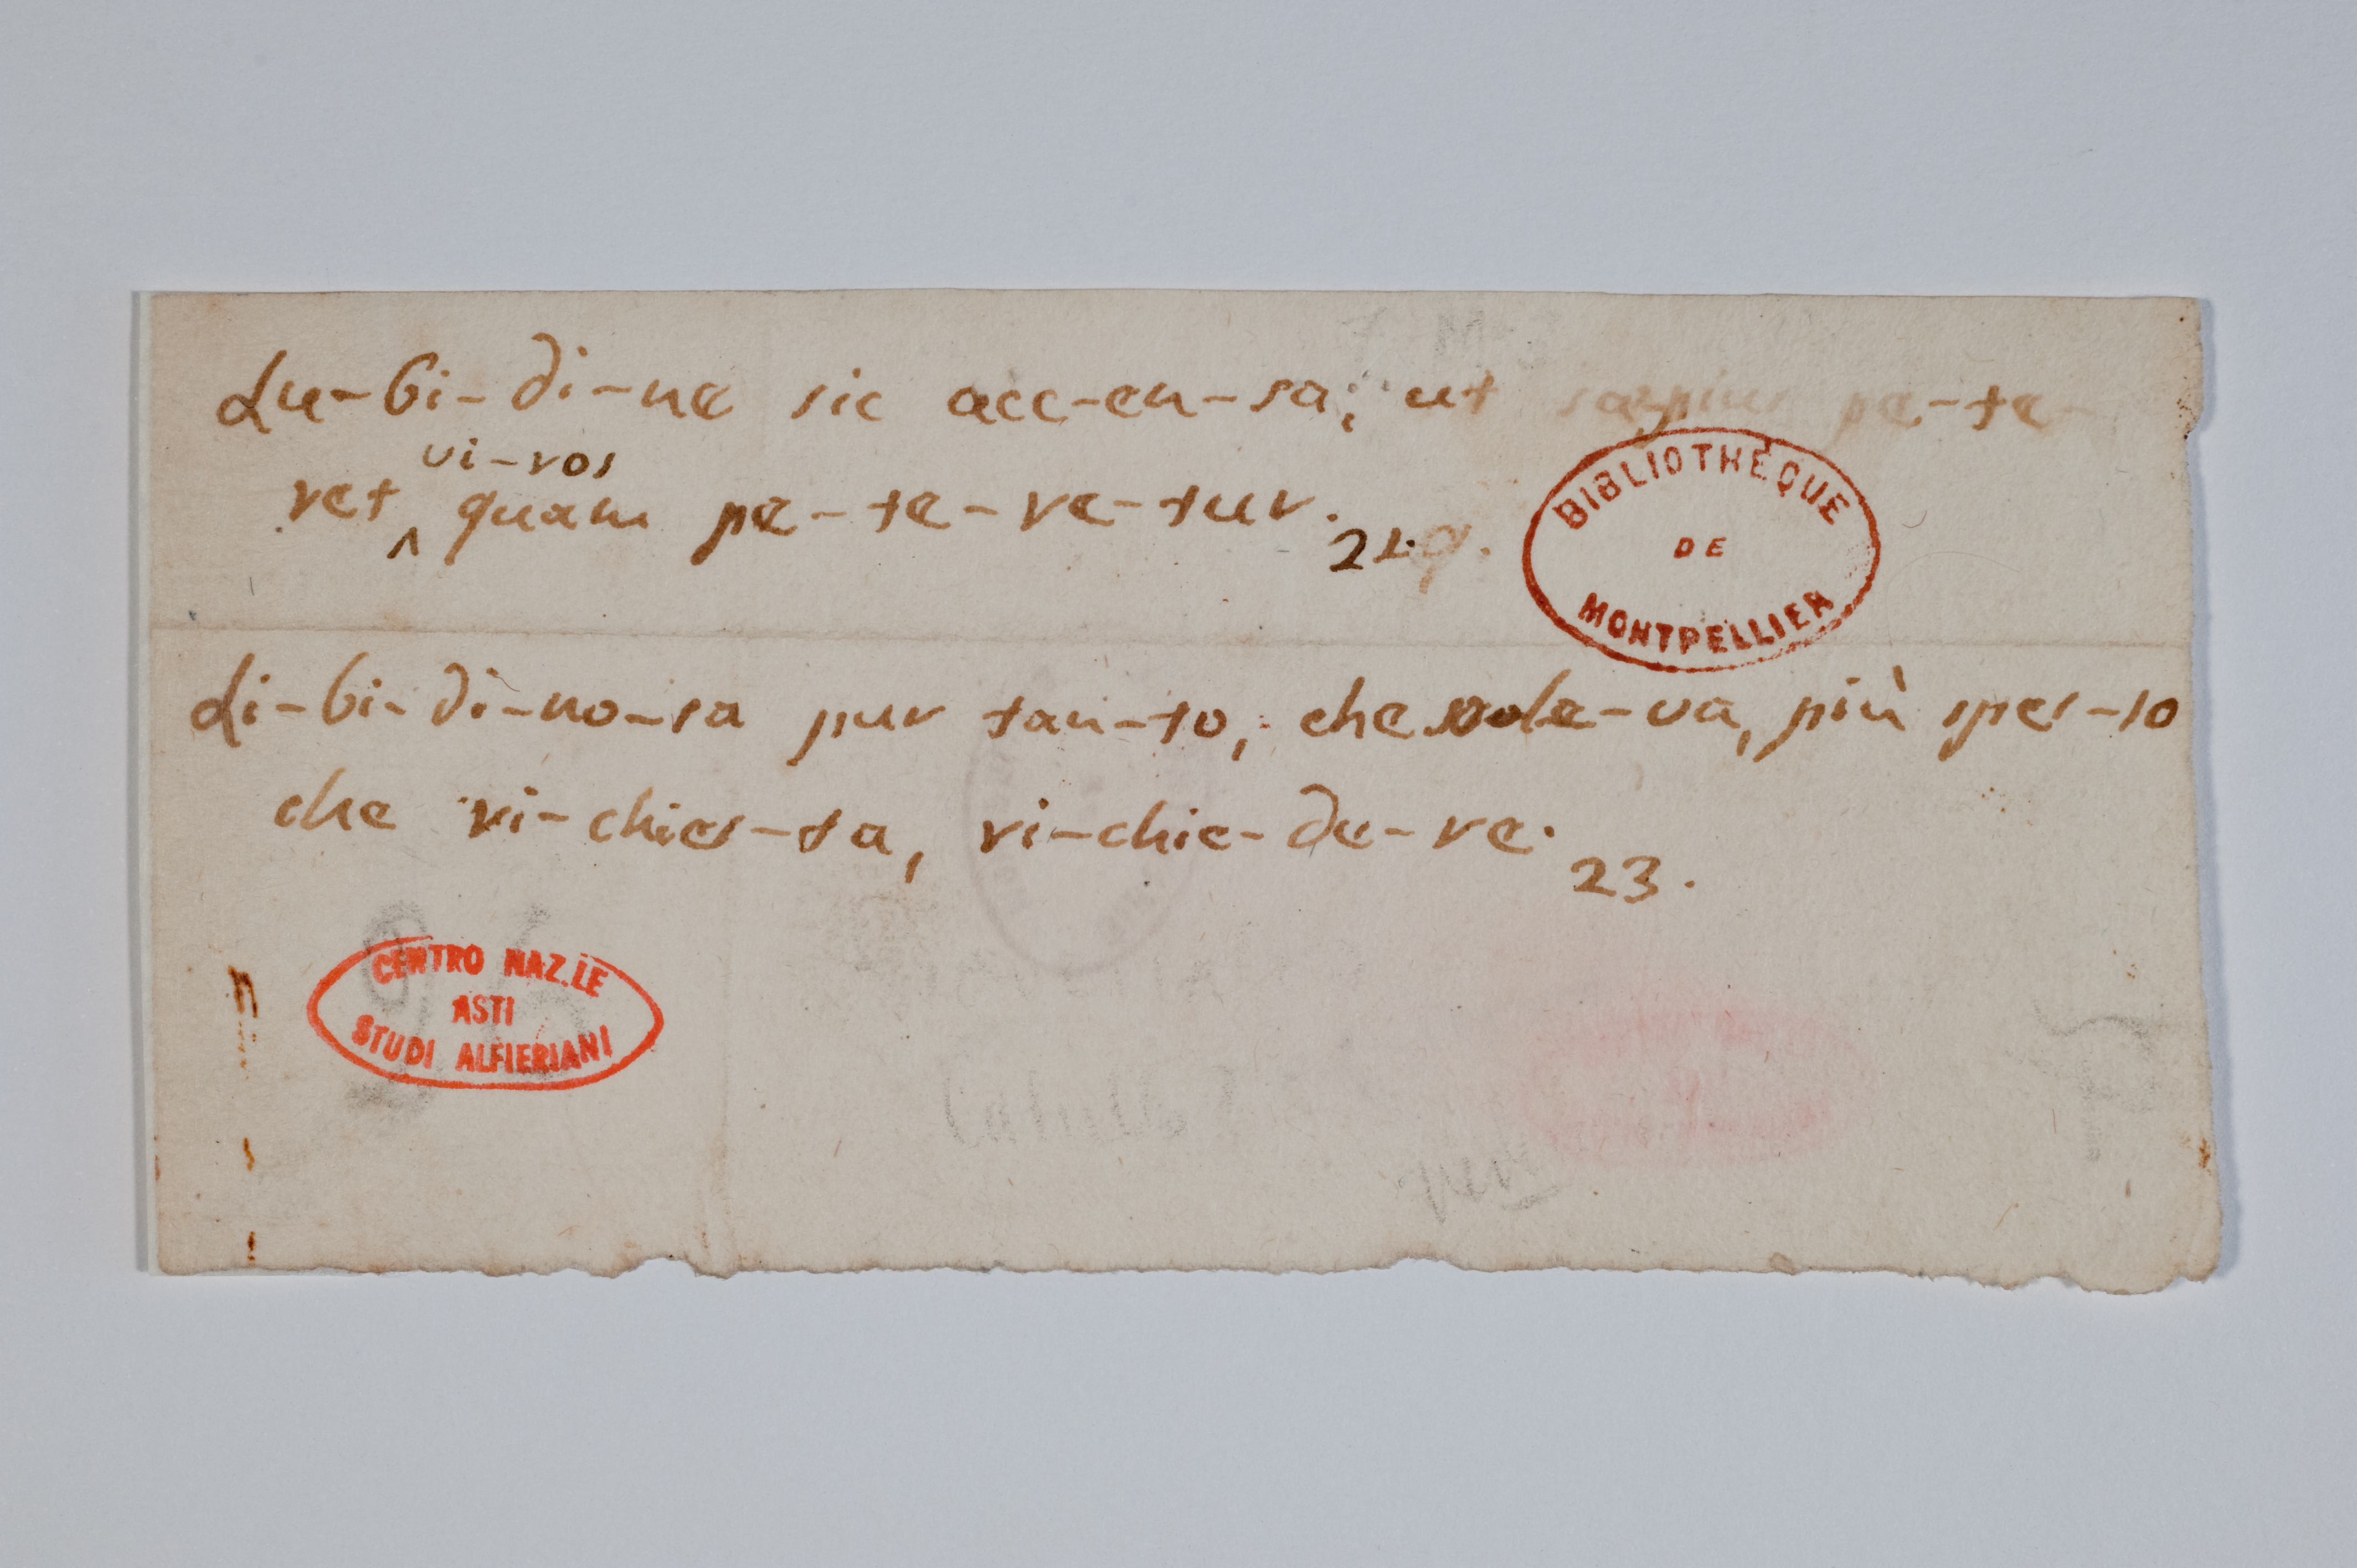 Lu-bi-di-ne sic acc-en-sa; ut saepius pe-te-
vi-ros
ret ^ quam pe-te-re-tur. 21.
BIBLIOTHÈQUE
DE
MONTPELLIER
Li-bi-di-no-sa pur tan-to, che sole-va, più spes-so
che ri-chies-ta, ri-chie-de-re. 23.
CENTRO NAZ.LE
ASTI
STUDI ALFIERIANI